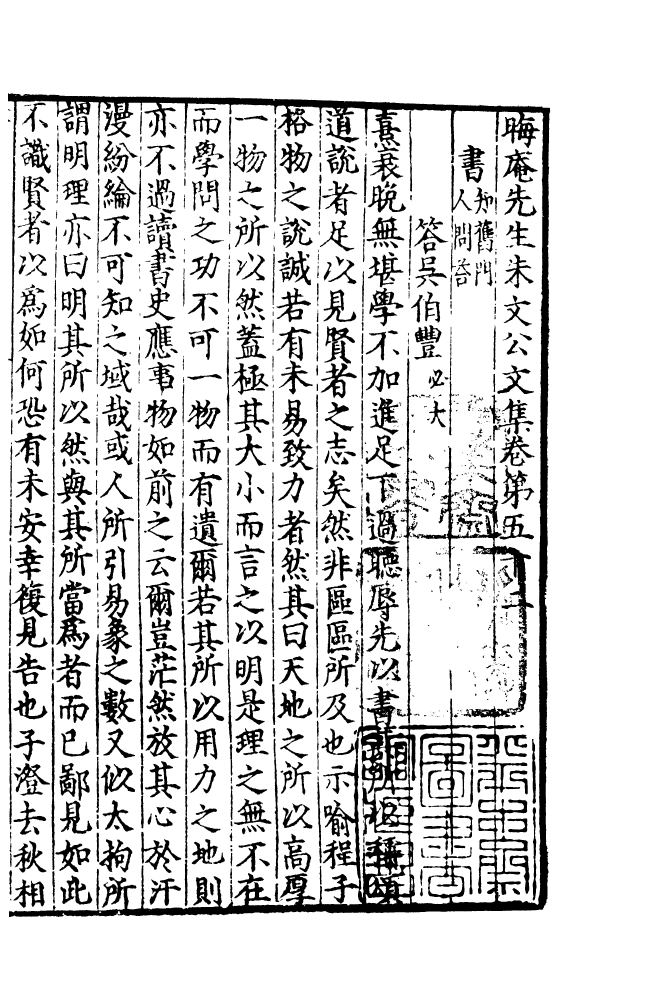 晦庵先生朱文公文集卷第五十二
書知舊門人問答
答吳伯豐必大
熹衰晚無堪學不加進足下過聽辱先以書
道說者足以見賢者之志矣然非區區所及也示喻程子
格物之說誠若有未易致力者然其曰天地之所以高厚
一物之所以然蓋極其大小而言之以明是理之無不在
而學問之功不可一物而有遺爾若其所以用力之地則
亦不過讀書史應事物如前之云爾豈茫然放其心於汗
漫紛綸不可知之域哉或人所引易象之數又似太拘所
謂明理亦曰明其所以然與其所當爲者而已鄙見如此
不識賢者以爲如何恐有未安幸復見告也子澄去秋相